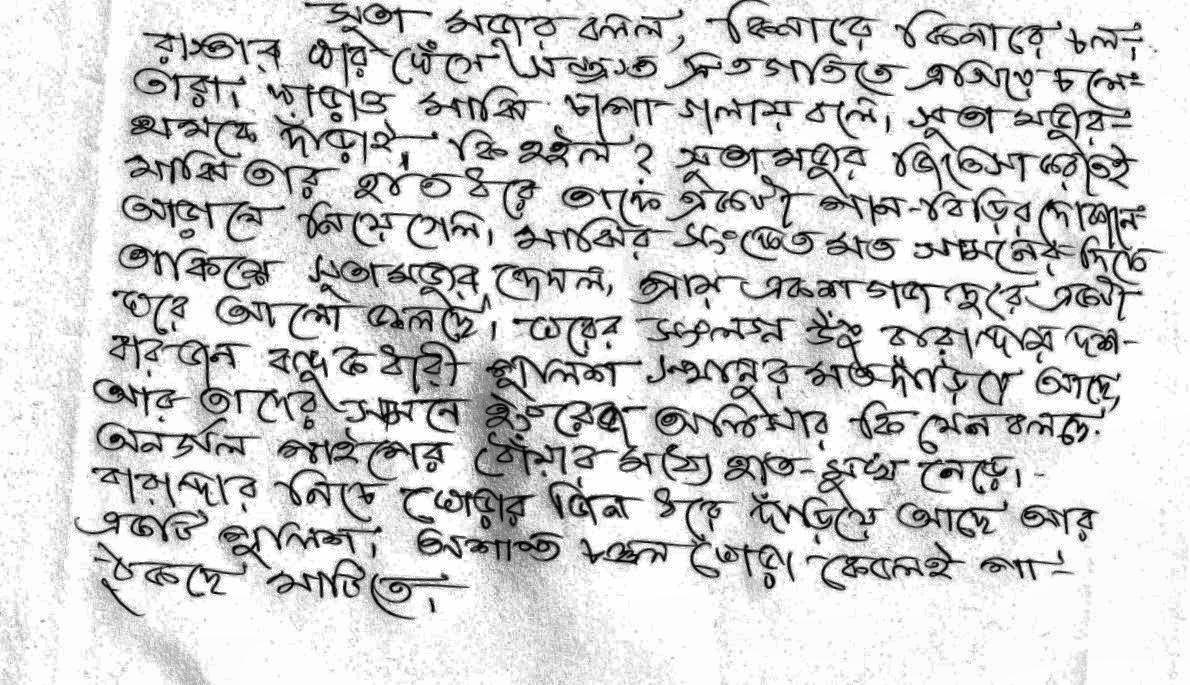 সুতা মজুর বলল, কিনারে কিনারে চল।
রাস্তার ধার ঘেঁসে সন্ত্রস্ত দ্রুতগতিতে এগিয়ে চলে
তারা। দাঁড়াও মাঝি চাপা গলায় বলে। সুতা মজুর
থমকে দাঁড়ায়, কি হইল? সুতামজুর জিজ্ঞেস করতেই
মাঝি তার হাত ধরে তাকে একটা পান-বিড়ির দোকানে
আড়ালে নিয়ে গেল। মাঝির সংকেত মত সামনের দিকে
তাকিয়ে সুতামজুর দেখল, প্রায় একশ গজ দূরে একটা
ঘরে আলো জ্বলছে। ঘরের সংলগ্ন উঁচু বারান্দায় দশ-
বারজন বন্দুকধারী পুলিশ স্থানুর মত দাঁড়িয়ে আছে,
আর তাদের সামনে ইংরেজ অফিসার কি যেন বলছে
অনর্গল পাইপের ধোঁয়ার মধ্যে হাত-মুখ নেড়ে।
বারান্দার নিচে ঘোড়ার জিন ধরে দাঁড়িয়ে আছে আর
একটি পুলিশ। অশান্ত চঞ্চল ঘোড়া কেবলই পা-
ঠুকছে মাটিতে।